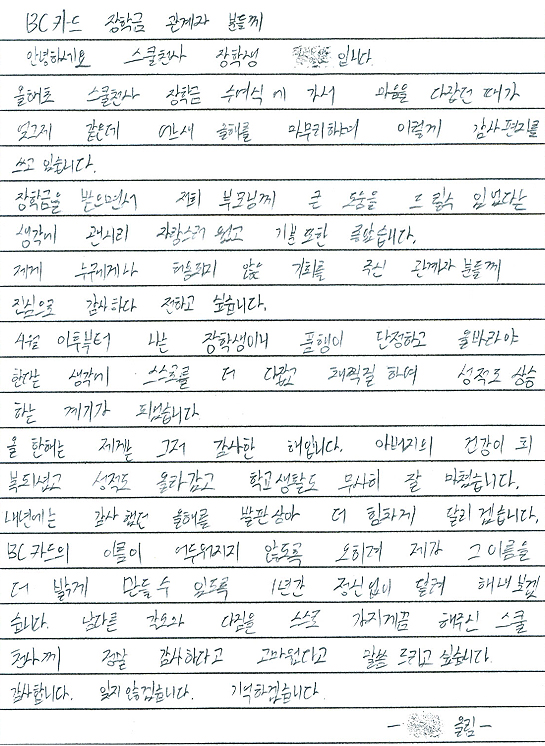 BC카드 장학금 관계자 분들께
안녕하세요 스쿨천사 장학생 입니다
올해초 스쿨천사 장학금 수여식에 가서 마음을 다잡던 때가
엊그제 같은데 어느새 올해를 마무리하며 이렇게 감사편지를
쓰고 있습니다.
장학금을 받으면서 저희 부모님께 큰 도움을 드릴수 있었다는
생각에 괜시리 자랑스러웠고 기분 또한 좋았습니다.
제게 누구에게나 허용되지 않는 기회를 주신 관계자분들께
진심으로 감사하다 전하고 싶습니다.
4월 이후부터 나는 장학생이니 품행이 단정하고 올바라야
한다는 생각에 스스로를 더 다잡고 채찍질 하며 성적도 상승
하는 계기가 되었습니다
올 한해는 제게는 그저 감사한 해입니다. 아버지의 건강이 회
복되셨고 성적도 올라가고 학교생활도 무사히 잘 마쳤습니다.
내년에는 감사했던 올해를 발판삼아 더 힘차게 달리겠습니다.
BC카드의 이름이 어두워지지 않도록 오히려 제가 그 이름을
더 밝게 만들 수 있도록 1년간 정신없이 달려 해내보겠
습니다. 남다른 각오와 다짐을 스스로 가지게끔 해주신 스쿨
천사께 정말 감사하다고 고마웠다고 말씀 드리고 싶습니다.
감사합니다. 잊지 않겠습니다. 기억하겠습니다.
- 올림 -